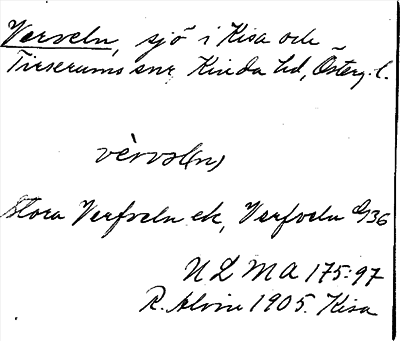 Verveln, sjö i Kisa och
Tirserums snr Kinda hd, Österg. l.
vèrvəl(n)
Stora Verfveln ek, Verfveln G36
ULMA 175:97
R. Alvin 1905. Kisa